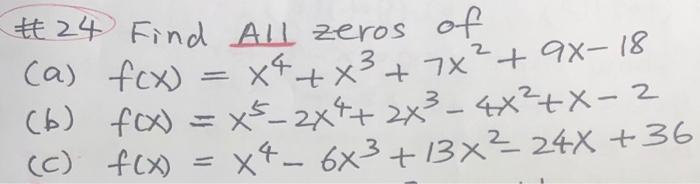 #24 Find All zeros of
(a) f(x) = x⁴ + x³ + 7x² + 9x - 18
(b) f(x) = x⁵ - 2x⁴ + 2x³ - 4x² + x - 2
(c) f(x) = x⁴ - 6x³ + 13x² - 24x + 36